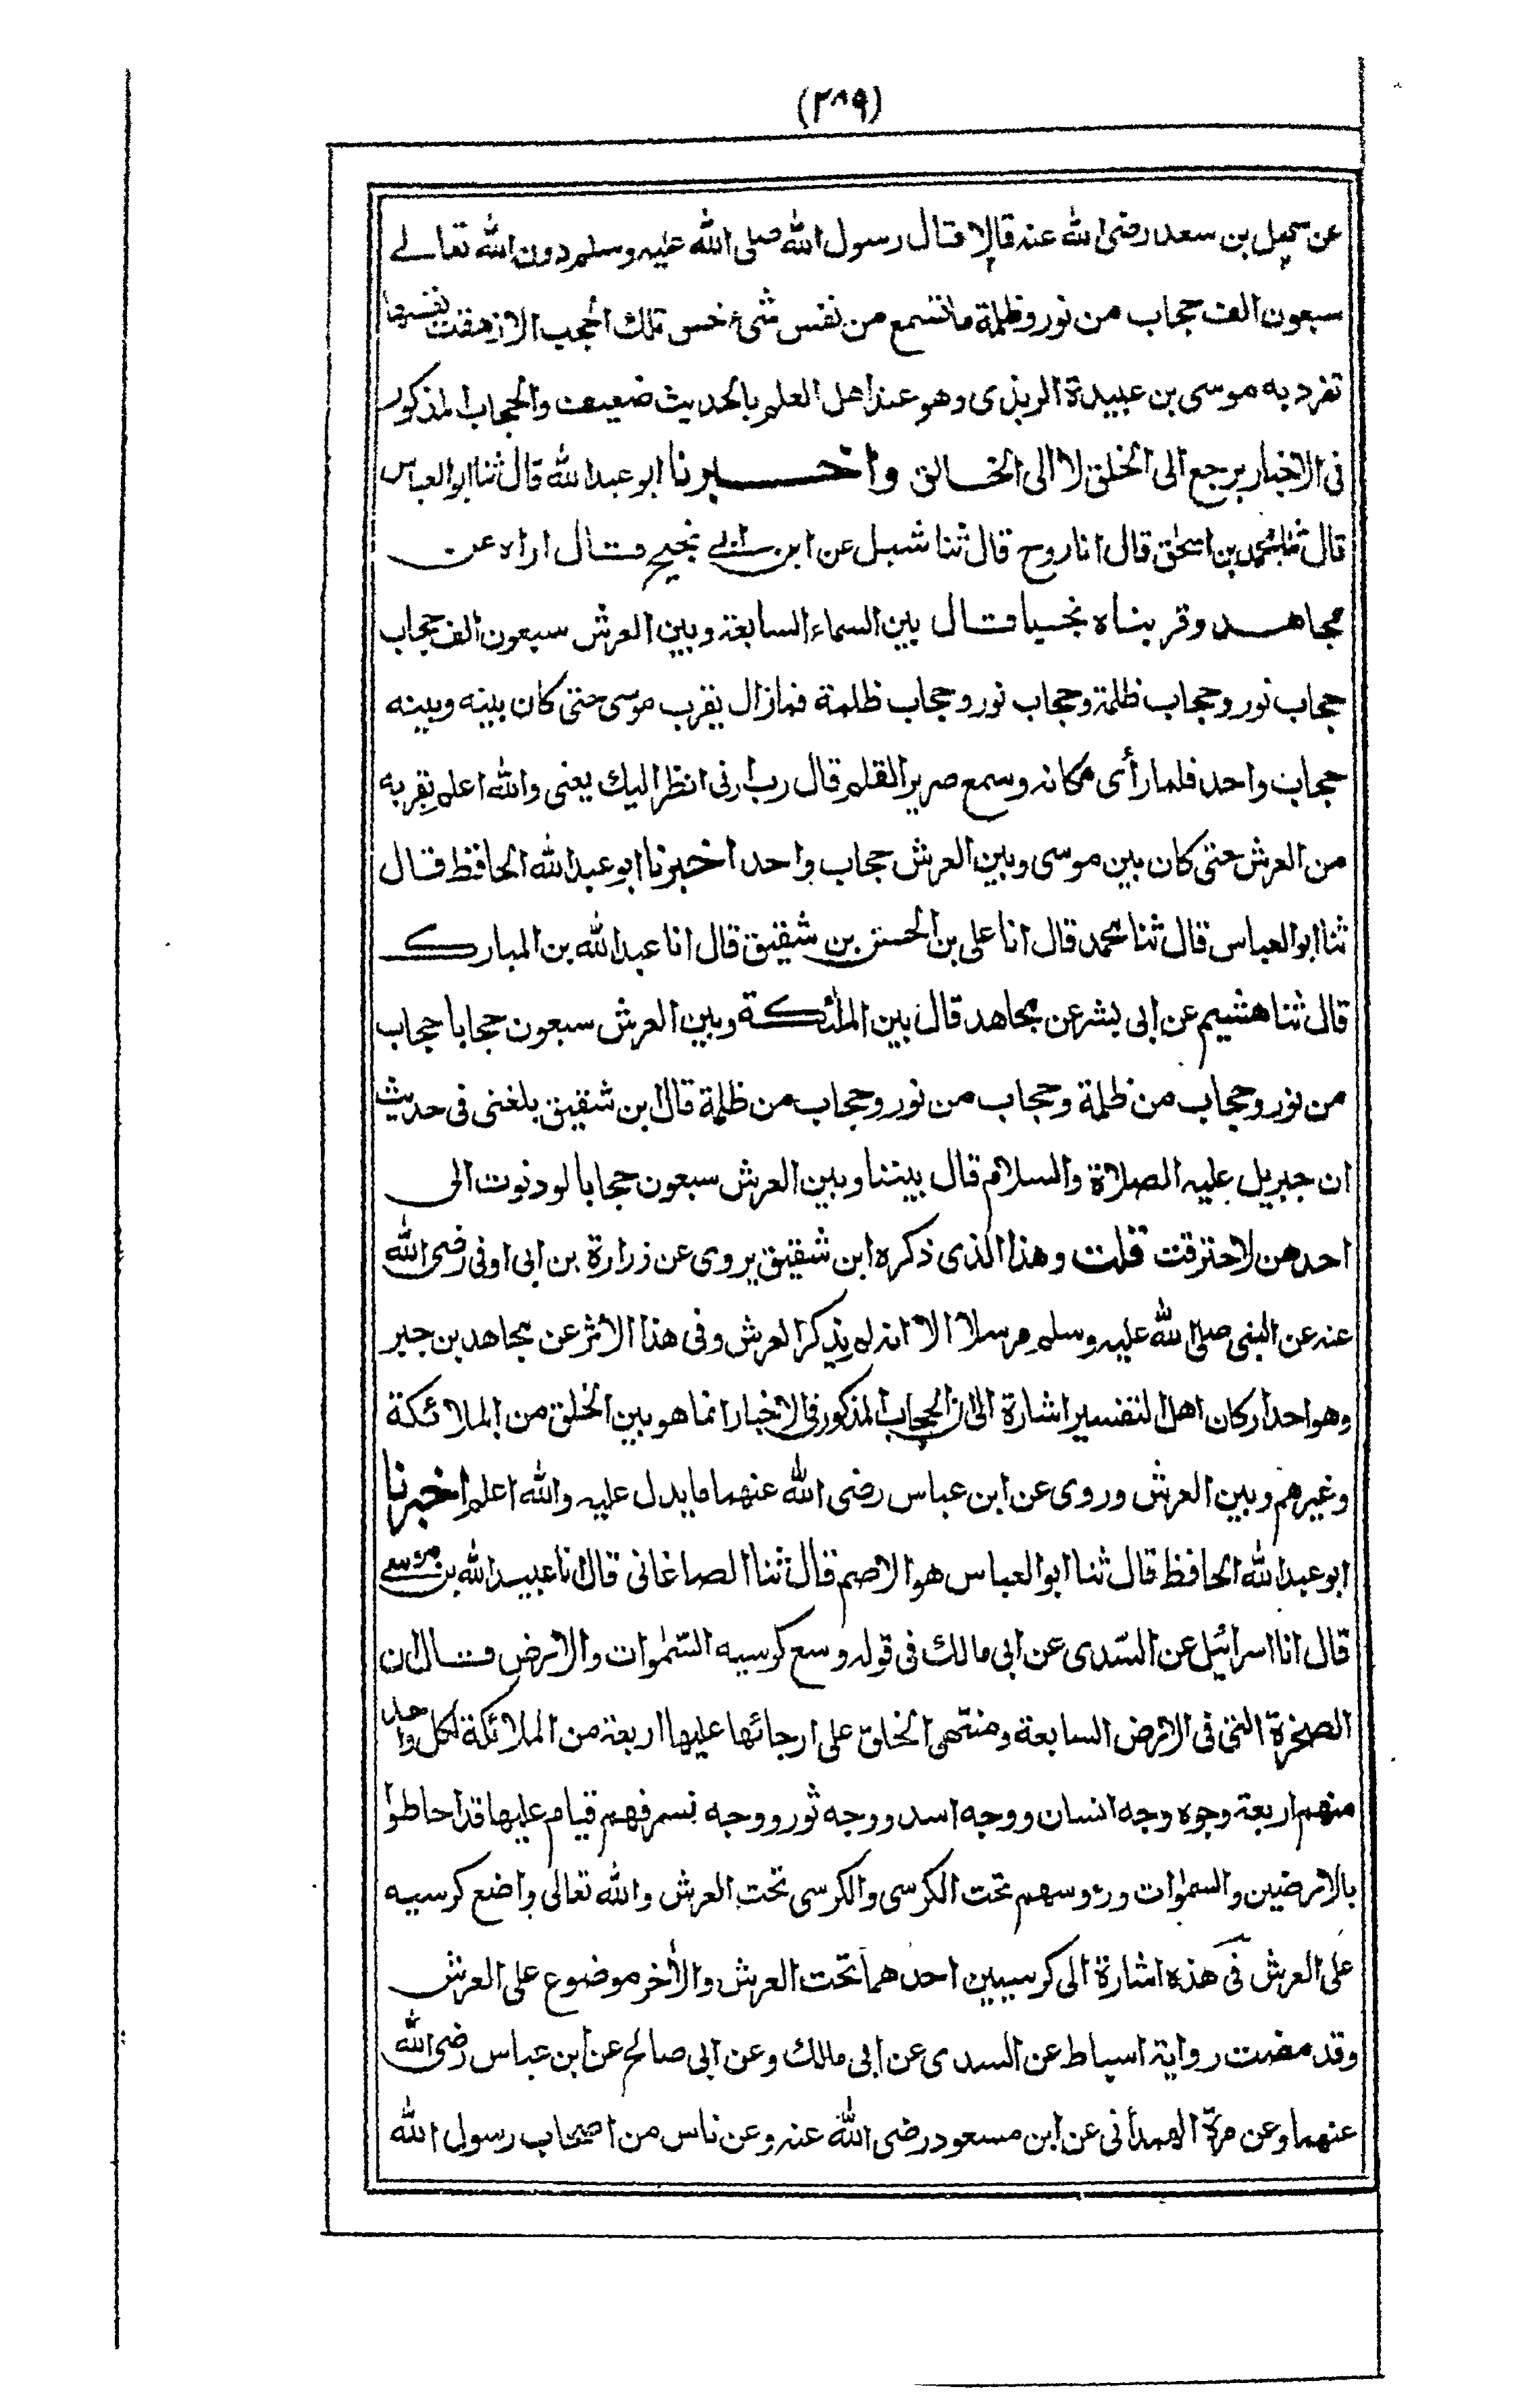 (٢٨٩)
عن سهيل بن سعد رضى الله عنه قالا قال رسول الله صلى الله عليه وسلم دون الله تعالى
سبعون الف حجاب من نور وظلمة ما تسمع من نفس شىء خس تلك الحجب الا زهقت نفسها
تفرد به موسى بن عبيدة الربذى وهو عند اهل العلم بالحديث ضعيف والحجاب المذكور
فى الاخبار يرجع الى الخلق لا الى الخالق واخبرنا ابو عبد الله قال ثنا ابو العباس
قال ثنا محمد بن اسحٰق قال انا روح قال ثنا شبل عن ابن ابى نجيح قال اراه عن
مجاهد وقربناه نجيا قال بين السماء السابعة وبين العرش سبعون الف حجاب
حجاب نور وحجاب ظلمة وحجاب نور وحجاب ظلمة فمازال يقرب موسى حتى كان بينه وبينه
حجاب واحد فلما رأى مكانه وسمع صرير القلم قال رب ارنى انظر اليك يعنى والله اعلم يقربه
من العرش حتى كان بين موسى وبين العرش حجاب واحد اخبرنا ابو عبد الله الحافظ قال
ثنا ابو العباس قال ثنا محمد قال انا على بن الحسن بن شقيق قال انا عبد الله بن المبارك
قال ثنا هشيم عن ابى بشر عن مجاهد قال بين الملئكة وبين العرش سبعون حجابا حجاب
من نور وحجاب من ظلمة وحجاب من نور وحجاب من ظلمة قال ابن شقيق بلغنى فى حديث
ان جبريل عليه الصلاة والسلام قال بيننا وبين العرش سبعون حجابا لو دنوت الى
احدهن لاحترقت قلت وهذا الذى ذكره ابن شقيق يروى عن زرارة بن ابى اوفى رضى الله
عنه عن النبى صلى الله عليه وسلم مرسلا الا انه لم يذكر العرش وفى هذا الاثر عن مجاهد بن جبر
وهو احد اركان اهل التفسير اشارة الى ان الحجاب المذكور فى الاخبار انما هو بين الخلق من الملائكة
وغيرهم وبين العرش وروى عن ابن عباس رضى الله عنهما ما يدل عليه والله اعلم اخبرنا
ابو عبد الله الحافظ قال ثنا ابو العباس هو الاصم قال ثنا الصاغانى قال انا عبيد الله بن موسى
قال انا اسرائيل عن السّدى عن ابى مالك فى قوله وسع كرسيه السّمٰوات والارض قال ان
الصخرة التى فى الارض السابعة ومنتهى الخلق على ارجائها عليها اربعة من الملائكة لكل واحد
منهم اربعة وجوه وجه انسان ووجه اسد ووجه ثور ووجه نسر فهم قيام عليها قد احاطوا
بالارضين والسمٰوات ورءوسهم تحت الكرسى والكرسى تحت العرش والله تعالى واضع كرسيه
على العرش فى هذه اشارة الى كرسيين احدهما تحت العرش والأخر موضوع على العرش
وقد مضت رواية اسباط عن السدى عن ابى مالك وعن ابى صالح عن ابن عباس رضى الله
عنهما وعن مرة الهمدانى عن ابن مسعود رضى الله عنه وعن ناس من اصحاب رسول الله